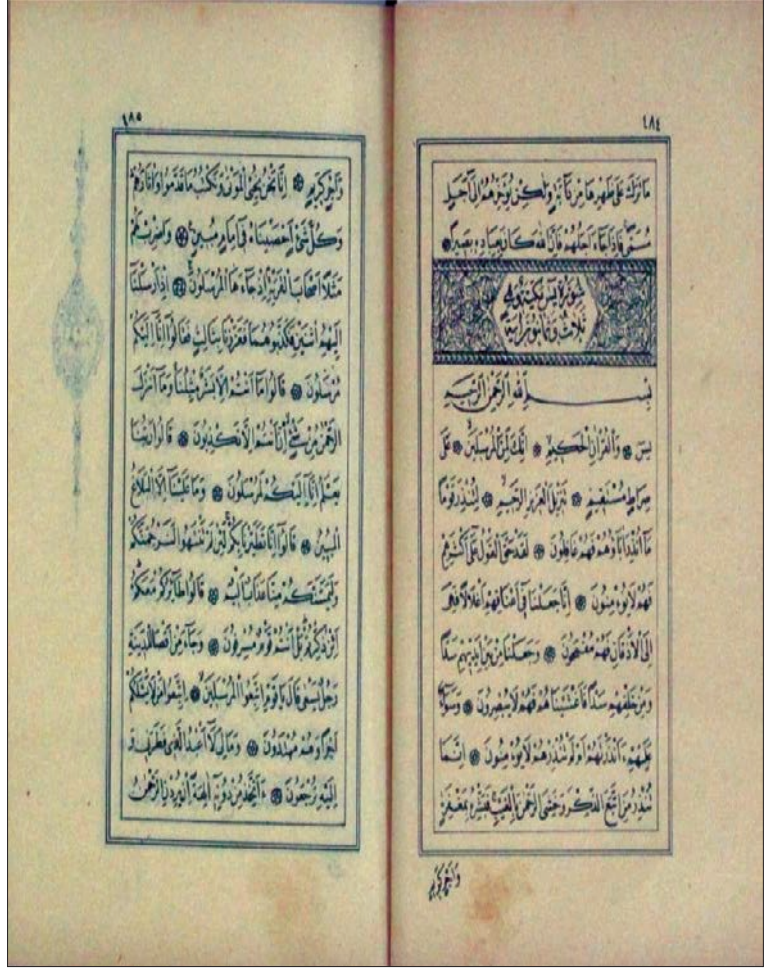 ٦٨٤
مَا تَرَكَ عَلَى ظَهْرِهَا مِنْ دَابَّةٍ وَلَكِنْ يُؤَخِّرُهُمْ إِلَى أَجَلٍ
مُسَمًّى فَإِذَا جَاءَ أَجَلُهُمْ فَإِنَّ اللهَ كَانَ بِعِبَادِهِ بَصِيرًا ۝
سُورَةُ يٰس مَكِّيَّةٌ وَهِيَ
ثَلَاثٌ وَثَمَانُونَ اٰيَة
بِسْمِ اللهِ الرَّحْمَنِ الرَّحِيمِ
يس ۝ وَالْقُرْآنِ الْحَكِيمِ ۝ إِنَّكَ لَمِنَ الْمُرْسَلِينَ ۝ عَلَى
صِرَاطٍ مُسْتَقِيمٍ ۝ تَنْزِيلَ الْعَزِيزِ الرَّحِيمِ ۝ لِتُنْذِرَ قَوْمًا
مَا أُنْذِرَ آبَاؤُهُمْ فَهُمْ غَافِلُونَ ۝ لَقَدْ حَقَّ الْقَوْلُ عَلَى أَكْثَرِهِمْ
فَهُمْ لَا يُؤْمِنُونَ ۝ إِنَّا جَعَلْنَا فِي أَعْنَاقِهِمْ أَغْلَالًا فَهِيَ
إِلَى الْأَذْقَانِ فَهُمْ مُقْمَحُونَ ۝ وَجَعَلْنَا مِنْ بَيْنِ أَيْدِيهِمْ سَدًّا
وَمِنْ خَلْفِهِمْ سَدًّا فَأَغْشَيْنَاهُمْ فَهُمْ لَا يُبْصِرُونَ ۝ وَسَوَاءٌ
عَلَيْهِمْ ءَأَنْذَرْتَهُمْ أَمْ لَمْ تُنْذِرْهُمْ لَا يُؤْمِنُونَ ۝ إِنَّمَا
تُنْذِرُ مَنِ اتَّبَعَ الذِّكْرَ وَخَشِيَ الرَّحْمَنَ بِالْغَيْبِ فَبَشِّرْهُ بِمَغْفِرَةٍ
وَأَجْرٍ كَرِيمٍ
٦٨٥
وَأَجْرٍ كَرِيمٍ ۝ إِنَّا نَحْنُ نُحْيِي الْمَوْتَى وَنَكْتُبُ مَا قَدَّمُوا وَآثَارَهُمْ
وَكُلَّ شَيْءٍ أَحْصَيْنَاهُ فِي إِمَامٍ مُبِينٍ ۝ وَاضْرِبْ لَهُمْ
مَثَلًا أَصْحَابَ الْقَرْيَةِ إِذْ جَاءَهَا الْمُرْسَلُونَ ۝ إِذْ أَرْسَلْنَا
إِلَيْهِمُ اثْنَيْنِ فَكَذَّبُوهُمَا فَعَزَّزْنَا بِثَالِثٍ فَقَالُوا إِنَّا إِلَيْكُمْ
مُرْسَلُونَ ۝ قَالُوا مَا أَنْتُمْ إِلَّا بَشَرٌ مِثْلُنَا وَمَا أَنْزَلَ
الرَّحْمَنُ مِنْ شَيْءٍ إِنْ أَنْتُمْ إِلَّا تَكْذِبُونَ ۝ قَالُوا رَبُّنَا
يَعْلَمُ إِنَّا إِلَيْكُمْ لَمُرْسَلُونَ ۝ وَمَا عَلَيْنَا إِلَّا الْبَلَاغُ
الْمُبِينُ ۝ قَالُوا إِنَّا تَطَيَّرْنَا بِكُمْ لَئِنْ لَمْ تَنْتَهُوا لَنَرْجُمَنَّكُمْ
وَلَيَمَسَّنَّكُمْ مِنَّا عَذَابٌ أَلِيمٌ ۝ قَالُوا طَائِرُكُمْ مَعَكُمْ
أَئِنْ ذُكِّرْتُمْ بَلْ أَنْتُمْ قَوْمٌ مُسْرِفُونَ ۝ وَجَاءَ مِنْ أَقْصَا الْمَدِينَةِ
رَجُلٌ يَسْعَى قَالَ يَا قَوْمِ اتَّبِعُوا الْمُرْسَلِينَ ۝ اتَّبِعُوا مَنْ لَا يَسْأَلُكُمْ
أَجْرًا وَهُمْ مُهْتَدُونَ ۝ وَمَالِيَ لَا أَعْبُدُ الَّذِي فَطَرَنِي وَ
إِلَيْهِ تُرْجَعُونَ ۝ ءَأَتَّخِذُ مِنْ دُونِهِ آلِهَةً إِنْ يُرِدْنِ الرَّحْمَنُ